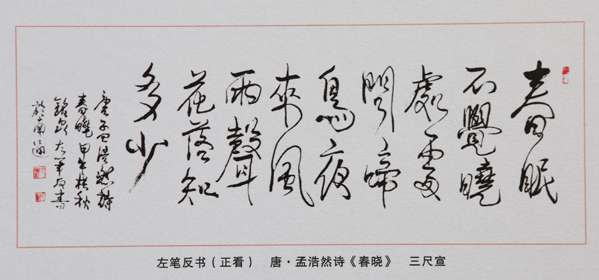 春眠
不覺曉
處處
聞啼
鳥夜
來風
雨聲
花落知
多少
孟浩然詩
春曉 甲午 秋
反書
於南通
左笔反书（正看） 唐·孟浩然诗《春晓》 三尺宣